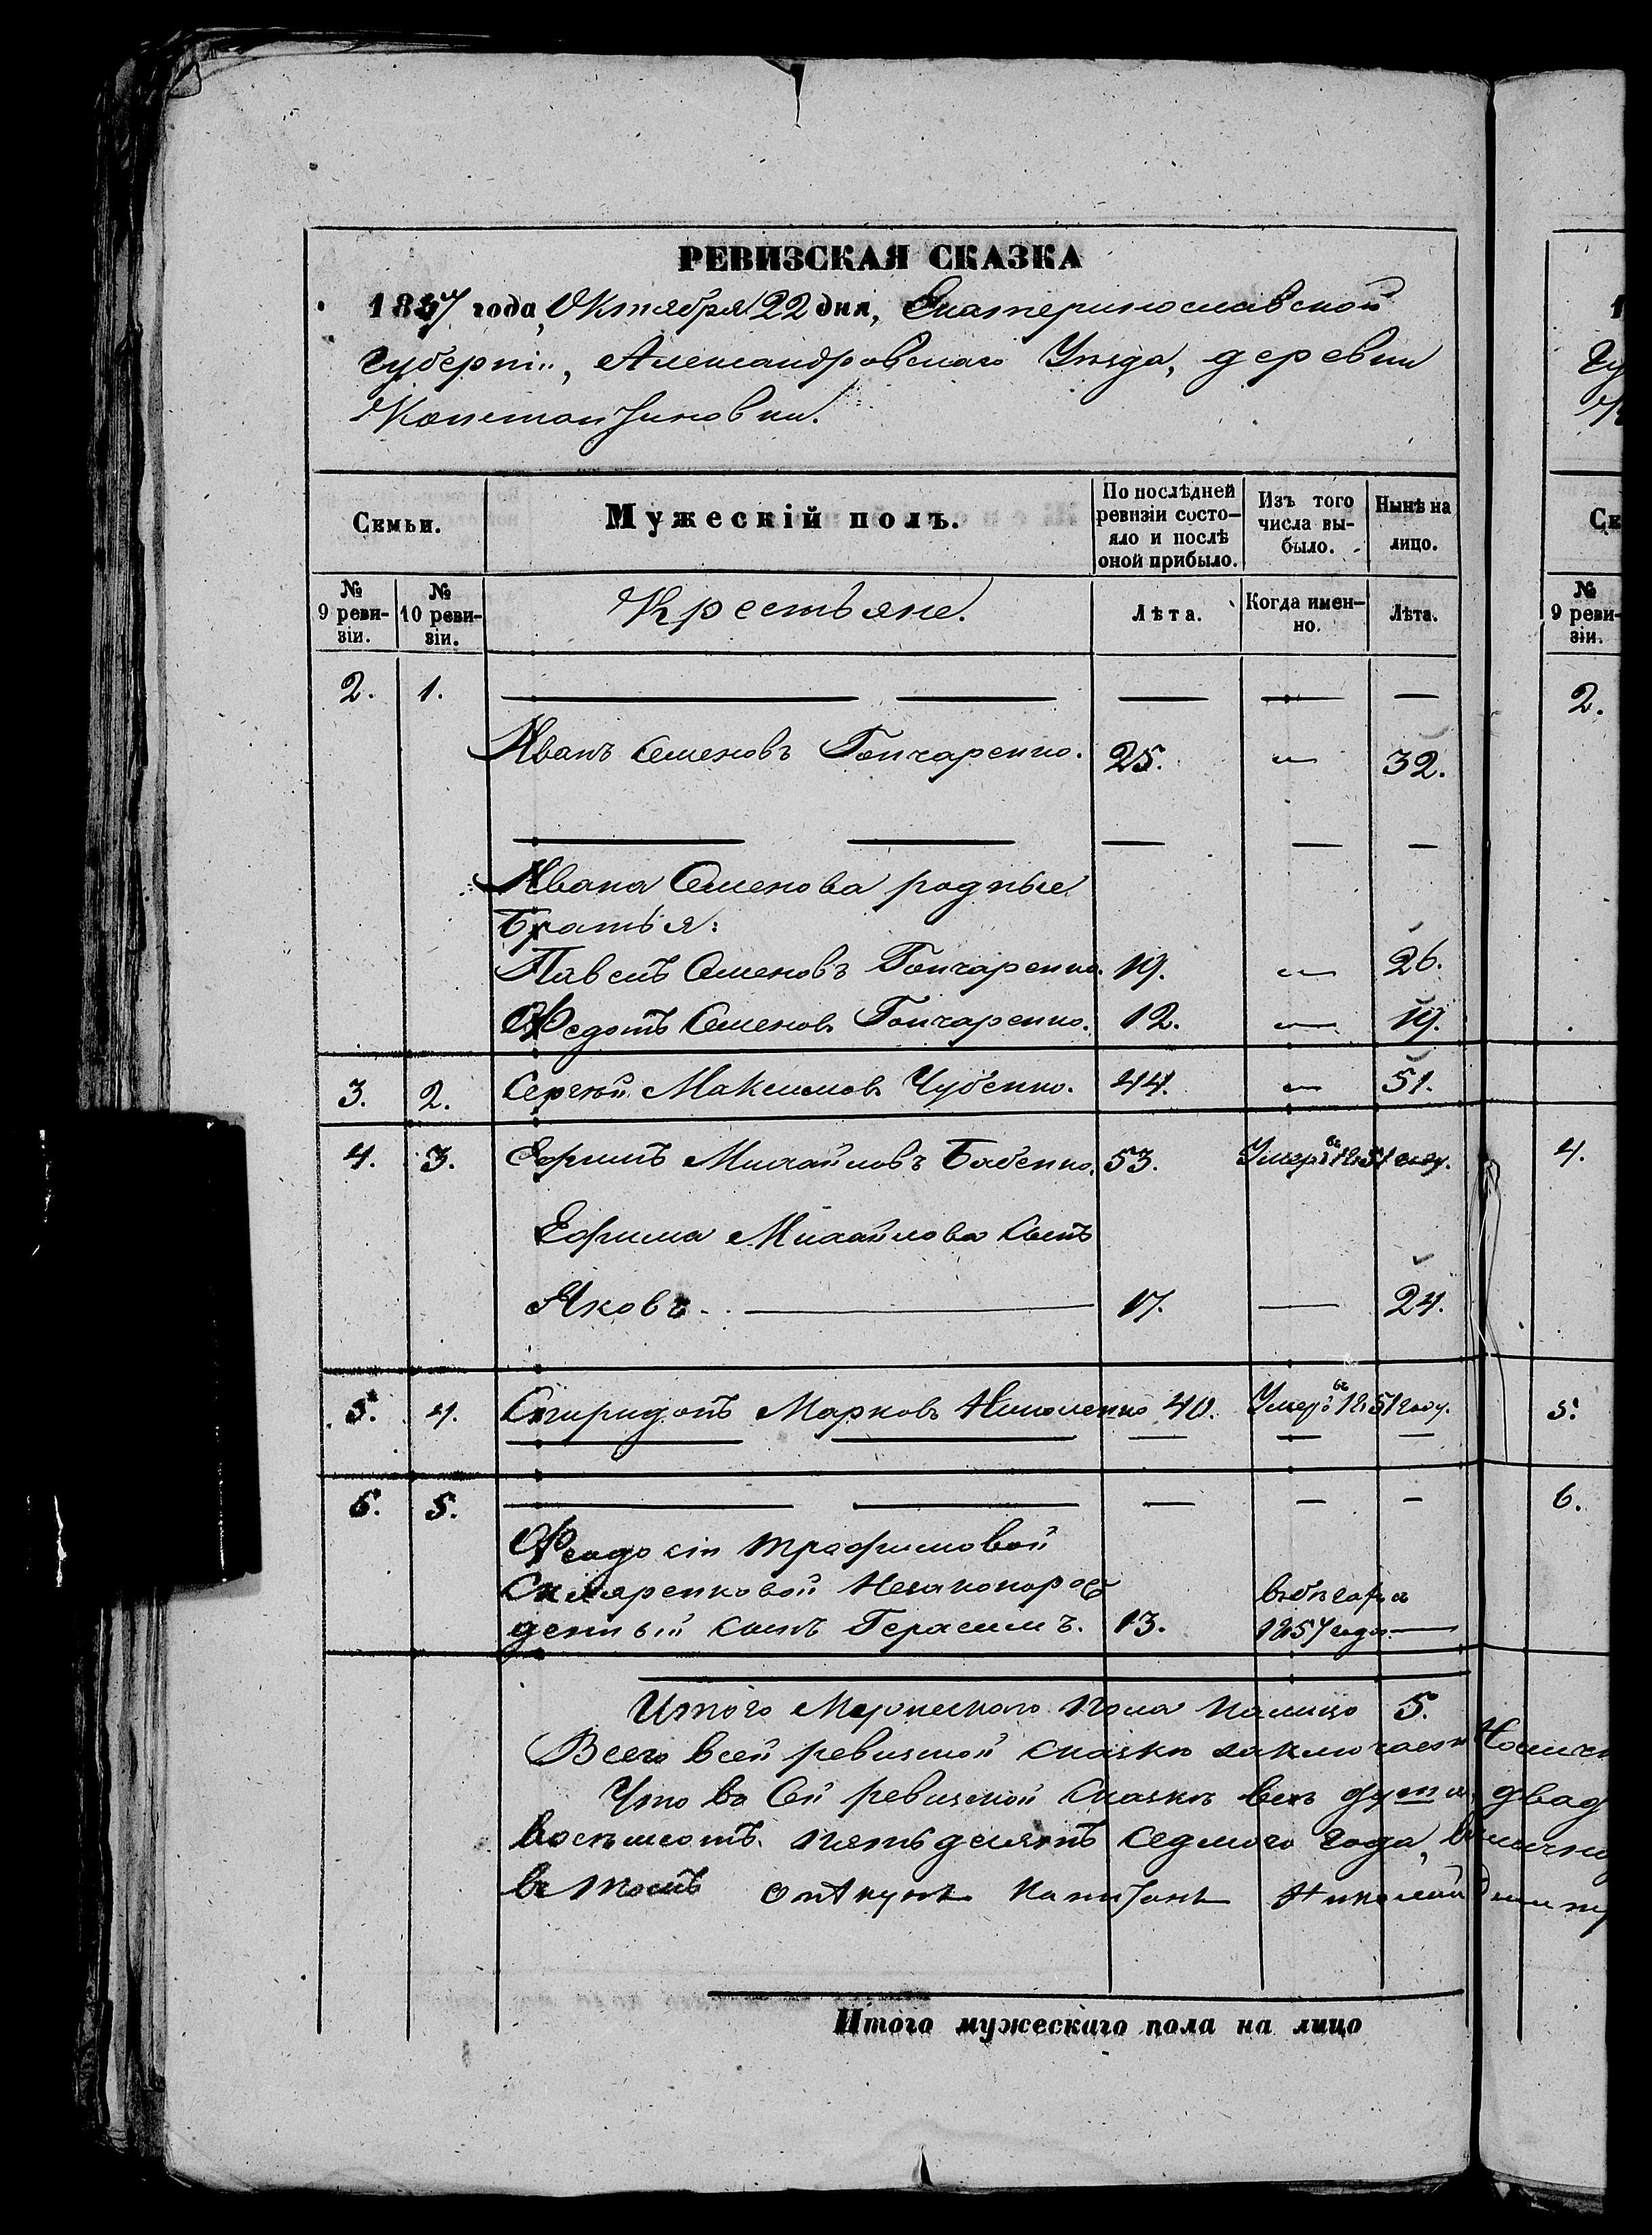 РЕВИЗСКАЯ СКАЗКА
1857 года, Октября 22 дня, Екатеринославской
губерніи, Александровскаго Уѣзда, деревни
Константиновки.
Семьи.
Мужескій полъ.
По послѣдней
ревизіи состо-
яло и послѣ
оной прибыло.
Изъ того
числа вы-
было.
Нынѣ на
лицо.
№
9 реви-
зіи.
№
10 реви-
зіи.
Крестьяне.
Лѣта.
Когда имен-
но.
Лѣта.
№
9 реви-
зіи.
2. 1. — — — — —
2.
Иванъ Семеновъ Гончаренко. 25. — 32.
— — — — —
Ивана Семенова родные
братья:
Павелъ Семеновъ Гончаренко. 19. — 26.
Федотъ Семеновъ Гончаренко. 12. — 19.
3. 2. Сергѣй Максимовъ Чубенко. 44. — 51.
4. 3. Ефимъ Михайловъ Бабенко. 53. Умеръ въ 1851 году.
4.
Ефима Михайлова сынъ
Яковъ. — 17. — 24.
5. 4. Спиридонъ Марковъ Николенко 40. Умеръ въ 1851 году.
5.
— — — — —
6. 5. — — — — —
6.
Феодосіи Трофимовой
Скляренковой Незаконорож
денный сынъ Герасимъ. 13.
въ бѣгахъ съ
1857 года. —
Итого Мужескаго пола налицо 5.
Всего всей ревизкой сказкѣ заключает
Что въ Сей ревизкой Сказкѣ всѣ души двад
восемьсотъ пятьдесятъ седмого года,
въ томъ Николай
Итого мужескаго пола на лицо